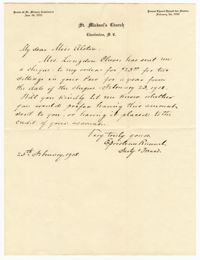 St. Michael's Church
Charleston, S. C.
My dear Miss
Mrs. Langdon Cheves has sent me
a cheque to my order for $23 for two
sittings in your Pew for a year from
the date of the cheque February 23, 1901.
Will you kindly let me know whether
you would prefer having this amount
sent to you, or having it placed to the
credit of your account.
Very truly yours
Secty & Treasr.
25th February, 1901.